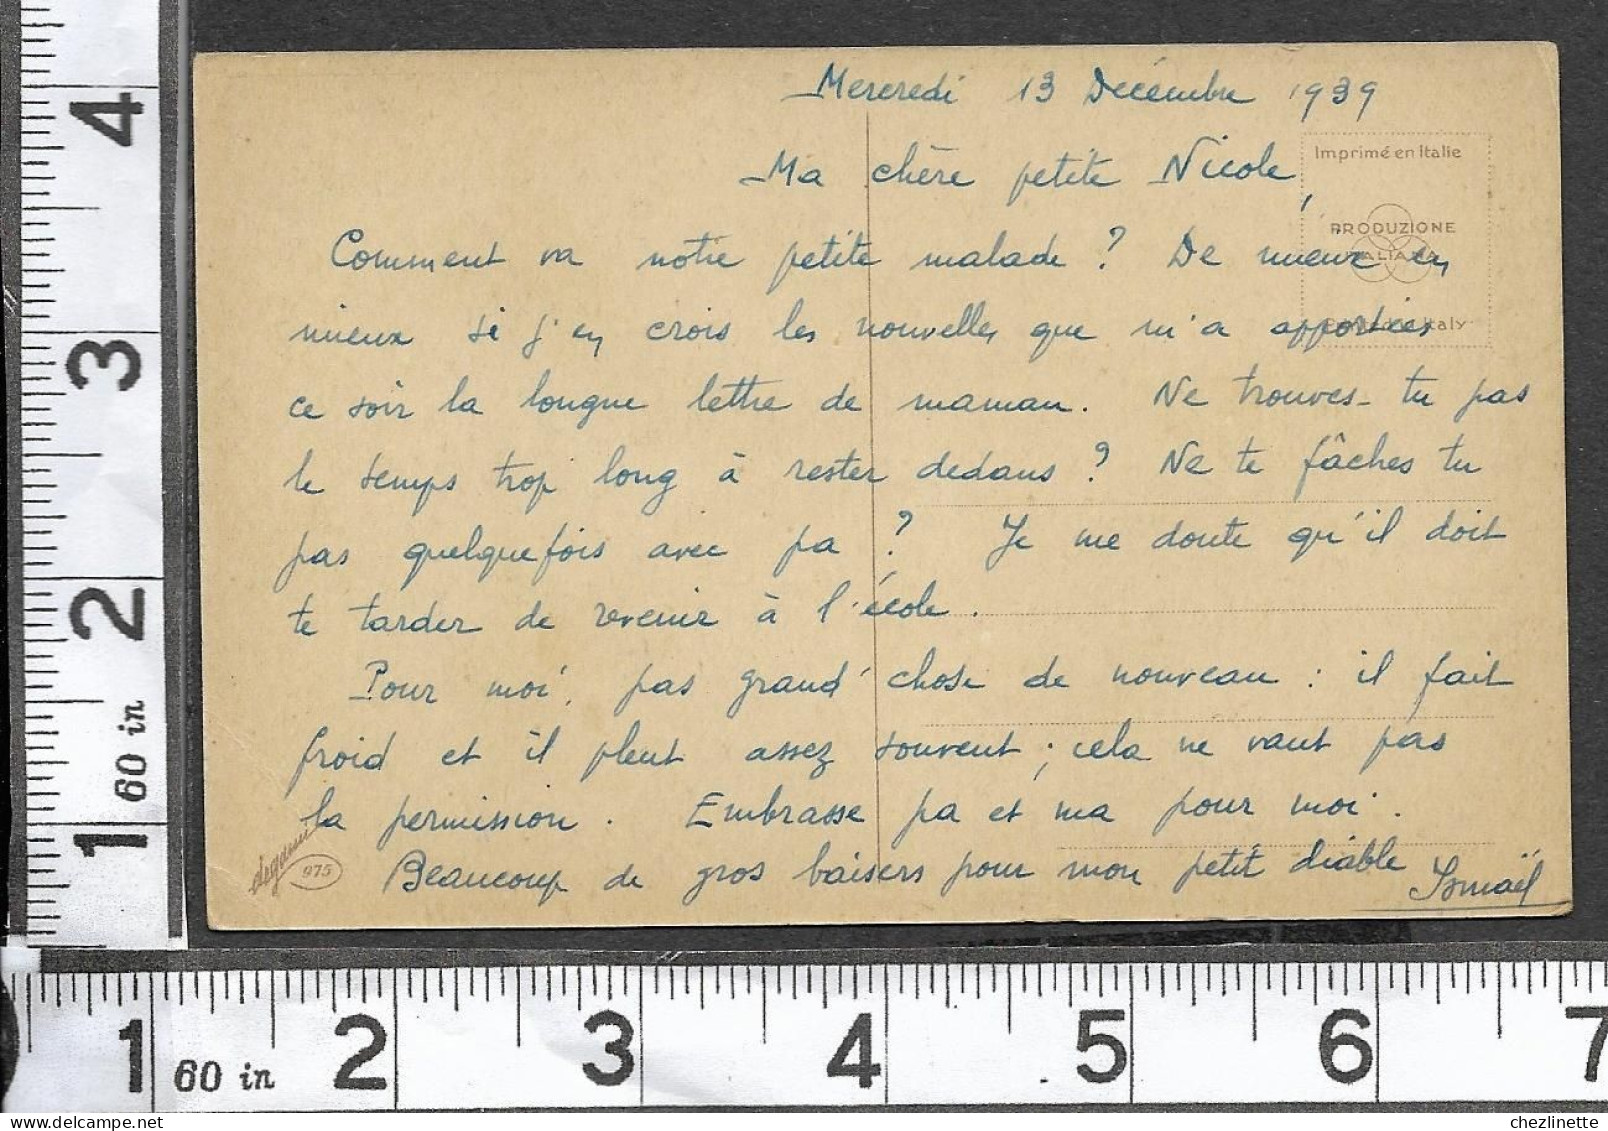 Mercredi 13 Décembre 1939
Ma chère petite Nicole,
Imprimé en Italie
PRODUZIONE
ITALIANA
Comment va notre petite malade ? De mieux en
mieux si j'en crois les nouvelles que m'a apportées
ce soir la longue lettre de maman. Ne trouves-tu pas
le temps trop long à rester dedans ? Ne te fâches tu
pas quelquefois avec pa ? Je me doute qu'il doit
te tarder de revenir à l'école.
Pour moi, pas grand'chose de nouveau : il fait
froid et il pleut assez souvent ; cela ne vaut pas
la permission. Embrasse pa et ma pour moi.
Beaucoup de gros baisers pour mon petit diable
Ismaël
degami
975
4
3
2
60 in
1
1
60 in
2
3
4
5
6
7
chezlinette